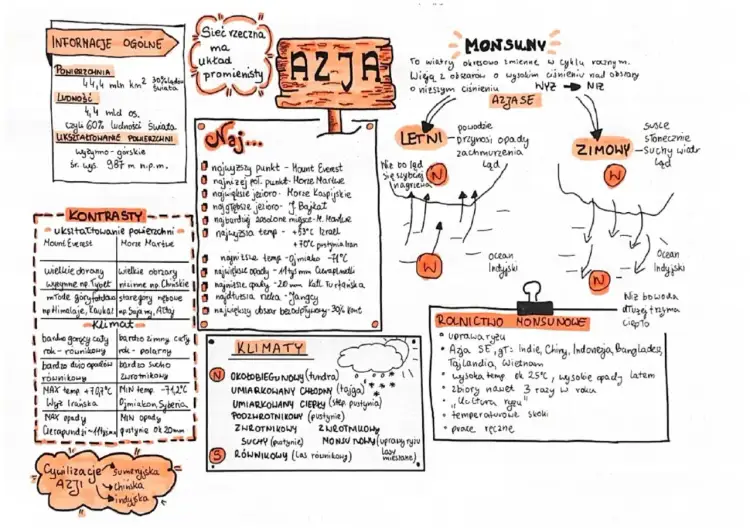 INFORMACJE OGÓLNE
POWIERZCHNIA
44,4 mln km² 30% lądów świata
LUDNOŚĆ
4,4 mld os.
czyli 60% ludności świata
UKSZTAŁTOWANIE POWIERZCHNI
wyżynno-górskie
śr. wys. 987 m n.p.m.
Sieć rzeczna
ma
układ
promienisty
AZJA
Naj...
najwyższy punkt - Mount Everest
najniżej poł. punkt - Morze Martwe
największe jezioro - Morze Kaspijskie
najgłębsze jezioro - J. Bajkał
najbardziej zasolone miejsce - M. Martwe
najwyższa temp - +53°C Izrael
+70°C pustynia Iran
najniższa temp - Ojmiako -71°C
największe opady - 11tys mm Czerapundżi
najniższe opady - 20mm Kotl. Turfańska
najdłuższa rzeka - Jangcy
największy obszar bezodpływowy - 30% kont
KONTRASTY
ukształtowanie powierzchni
Mount Everest
Morze Martwe
wielkie obszary
wyżynne np. Tybet
wielkie obszary
nizinne np. Chińskie
młode góry fałdowe
np Himalaje, Kaukaz
stare góry zrębowe
np Sajany, Ałtaj
Klimat
bardzo gorący cały
rok - równikowy
bardzo zimny cały
rok - polarny
bardzo dużo opadów
równikowy
bardzo sucho
zwrotnikowy
MAX temp +70,7°C
Wyż Irańska
MIN temp -71,2°C
Ojmiakon, Syberia
MAX opady
Czerapundżi ~11tys mm
MIN opady
pustynie ok 20mm
Cywilizacje
AZJI
sumeryjska
chińska
indyjska
KLIMATY
N
OKOŁOBIEGUNOWY (tundra)
UMIARKOWANY CHŁODNY (tajga)
UMIARKOWANY CIEPŁY (step pustynia)
PODZWROTNIKOWY (pustynie)
ZWROTNIKOWY ZWROTNIKOWY
SUCHY (pustynie) MONSUNOWY (uprawy ryżu
lasy
mieszane)
S RÓWNIKOWY (Las równikowy)
MONSUNY
To wiatry okresowo zmienne w cyklu rocznym.
Wieją z obszarów o wysokim ciśnieniu nad obszary
o niższym ciśnieniu WYŻ → NIŻ
AZJA SE
LETNI
powodzie
przynosi opady
zachmurzenia
ląd
Niż bo ląd
się szybciej
nagrzewa
N
W
Ocean
Indyjski
ZIMOWY
susze
słonecznie
suchy wiatr
ląd
W
N
Ocean
Indyjski
Niż bo woda
dłużej trzyma
ciepło
ROLNICTWO MONSUNOWE
uprawa ryżu
Azja SE, gł: Indie, Chiny, Indonezja, Bangladesz,
Tajlandia, Wietnam
wysoka temp ok 25°C, wysokie opady latem
zbiory nawet 3 razy w roku
"Kultura ryżu"
temperaturowe skoki
prace ręczne